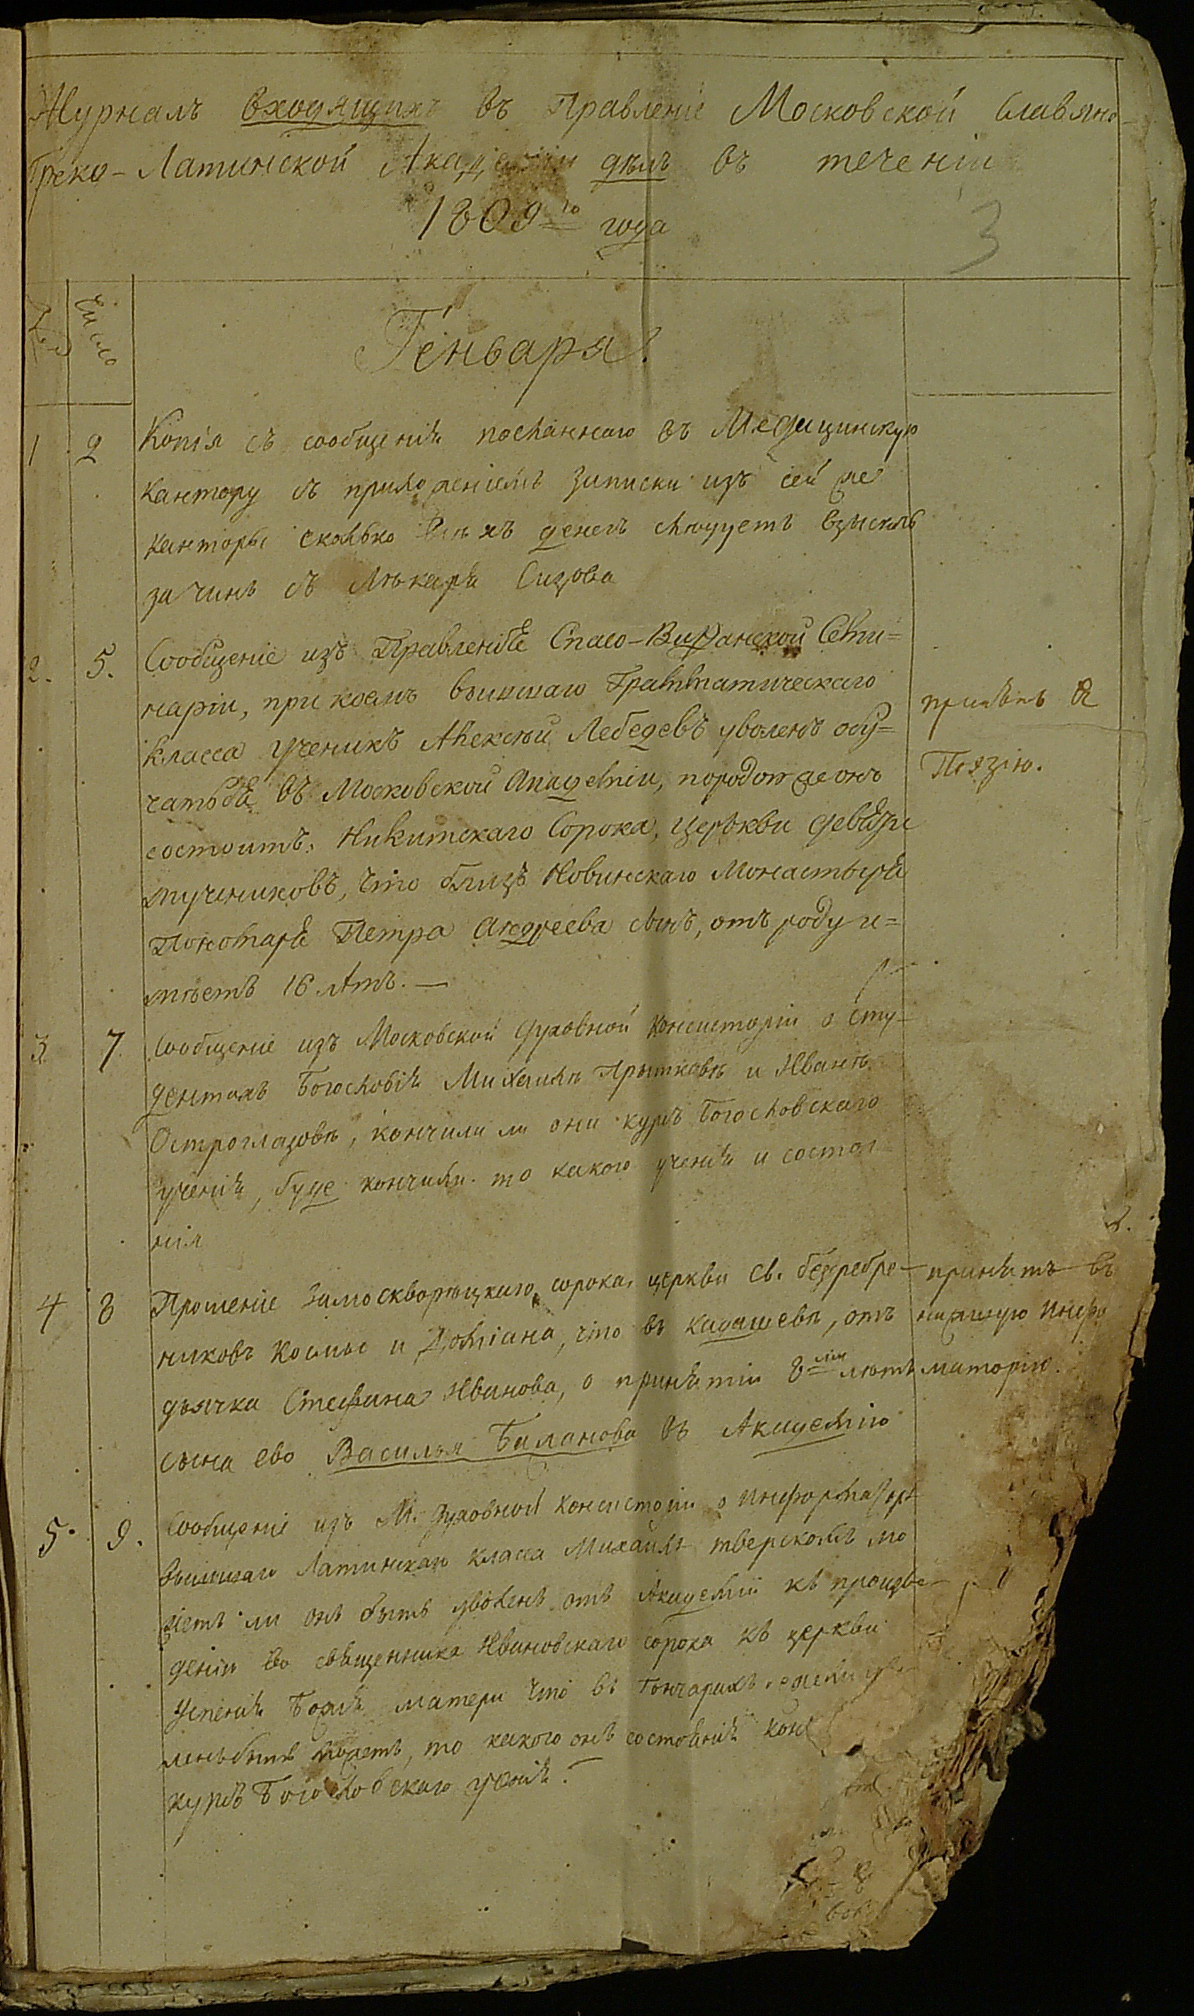 Журналъ входящихъ въ Правленіе Московской Славяно-
Греко-Латинской Академіи дѣлъ въ теченіи
1809го года
3
Число
Генварь.
1 2 Копія съ сообщенія посланнаго въ Медицинскую
кантору съ приложеніемъ записки изъ сей же
канторы сколько денегъ слѣдуетъ взыскать
за чинъ съ Лѣкаря Сизова
2. 5. Сообщеніе изъ Правленія Спасо-Виѳанской Семи=
наріи, при коемъ вышшаго Грамматическаго
класса ученикъ Алексѣй Лебедевъ уволенъ обу=
чаться въ Московской Академіи, породою же онъ
состоитъ, Никитскаго Сорока, церкви девяти
мучениковъ, что близъ Новинскаго Монастыря
Пономаря Петра Андреева сынъ, отъ роду и=
мѣетъ 16 лѣтъ. —
принятъ въ
Поэзію.
3. 7. Сообщеніе изъ Московской Духовной Консисторіи о сту-
дентахъ Богословія Михаилѣ Прытковѣ и Иванѣ
Остроглазовѣ, кончили ли они курсъ Богословскаго
ученія, буде кончили то какого ученія и состоя-
нія
4 8 Прошеніе Замоскворѣцкаго сорока, церкви Св. безсребре-
никовъ Космы и Доміана, что въ Кадашевѣ, отъ
дьячка Стефана Иванова, о принятіи 8ми лѣтъ
сына ево Василья Баланова въ Академію
принятъ въ
нисшую Инфор
маторію.
5. 9. Сообщеніе изъ М. Духовной Консисторіи о Информаторѣ
вышшаго Латинскаго класса Михаилѣ Тверскомъ мо
жетъ ли онъ быть уволенъ отъ Академіи къ произве-
денію во священника Ивановскаго сорока къ церкви
Успенія Божія матери что въ Гончарахъ, ежели уво-
ленъ быть можетъ, то какого онъ состоянія
курсъ Богословскаго ученія.